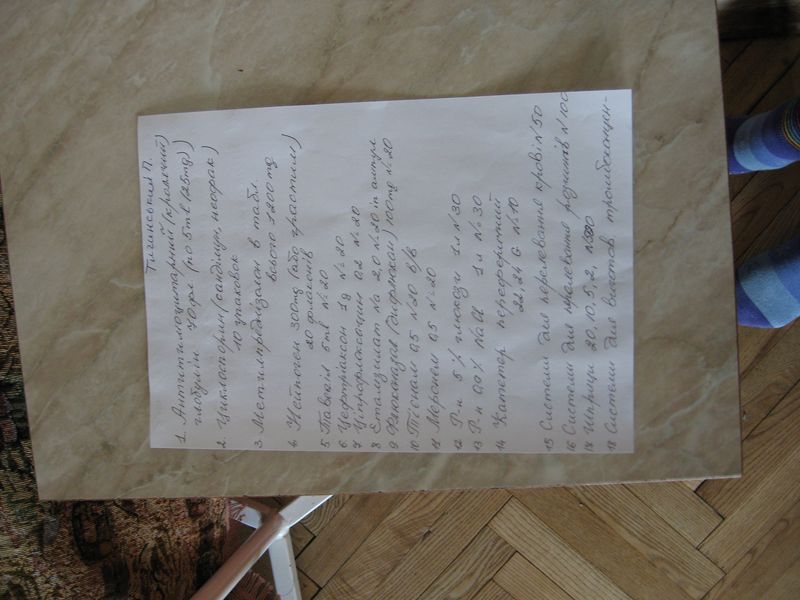 Тичинський П.
1. Антитимоцитарный (кролячий)
глобулін 40фл (по 5ml (25mg))
2. Циклоспорин (сандімун, неорал)
10 упаковок
3 Метилпреднізолон в табл.
всього 1200mg
4. Нейпоген 300mg (або грастим)
20 флаконів
5 Тавегіл 5ml №20
6 Цефтріаксон 1g №20
7 Ципрофлоксацин 0.2 №20
8 Еталезилат Na 2,0 №20 in ампул.
9 Флюконазол (дифлюкан) 100mg №20
10 Тієнам 0,5 №20 в/в
11 Меронем 0,5 №20
12 Р-н 5% глюкози 1л №30
13 Р-н 0,9% NaCl 1л №30
14 Катетер периферичний
22, 24 G №10
15 Системи для переливання крові №50
16 Системи для переливання розчинів №100
17 Шприци 20, 10, 5, 2,
18 Системи для